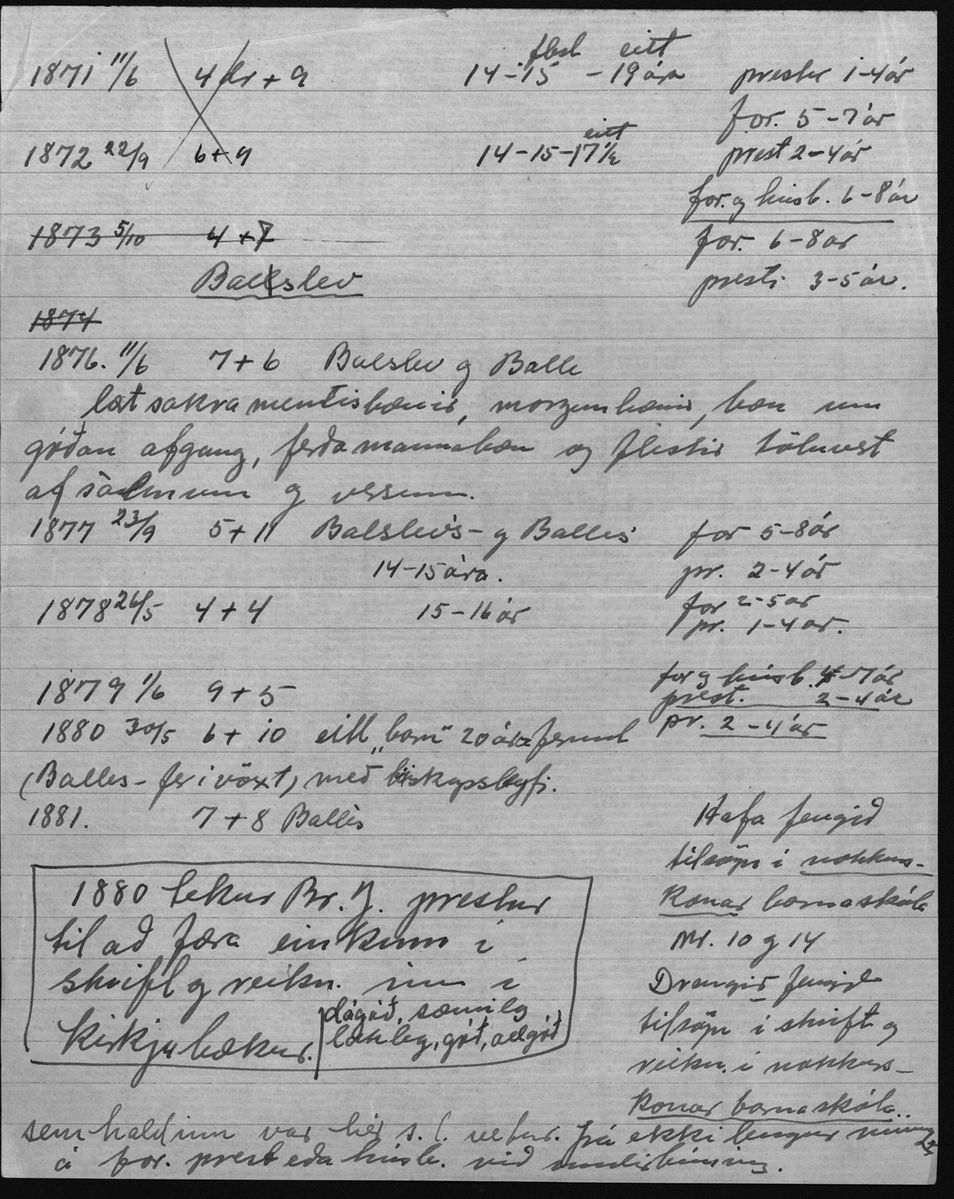 1871 11/6 4 dr + 9 14-15 flest - 19 ára eitt prestur 1-4 ár
for. 5-7 ár
1872 22/9 6+9 14-15-17½ eitt prest 2-4 ár
for. og húsb. 6-8 ár
1873 5/10 4+7 for. 6-8 ár
Balslev presti 3-5 ár.
1874
1876. 11/6 7+6 Balslev og Balle
lært sakramentisbænir, morgunbænir, bæn um
góðan afgang, ferðamannabæn og flestir töluvert
af sálmum og versum.
1877 23/9 5+11 Balslevs- og Balles for 5-8 ár
14-15 ára. pr. 2-4 ár
1878 26/5 4+4 15-16 ár for 2-5 ár
pr. 1-4 ár.
1879 1/6 9+5 for og húsb. 4-7 ár
prest. 2-4 ár
1880 30/5 6+10 eitt „barn" 20 ára fermt pr. 2-4 ár
(Balles- fer í vöxt) með biskupsleyfi.
1881. 7+8 Balles
Hafa fengið
tilsögn í nokkurs-
konar barnaskóla
Nr. 10 og 14
Drengir fengið
tilsögn í skrift og
reikn. í nokkurs-
konar barnaskóla..
1880 tekur Br. J. prestur
til að færa einkunn í
skrift og reikn. inn í
kirkjubækur.
dágóð, sæmileg
lakleg, góð, allgóð
sem haldinn var hér s.l. vetur. Frá ekki lengur
á for. prest eða húsb. við undirbúning.